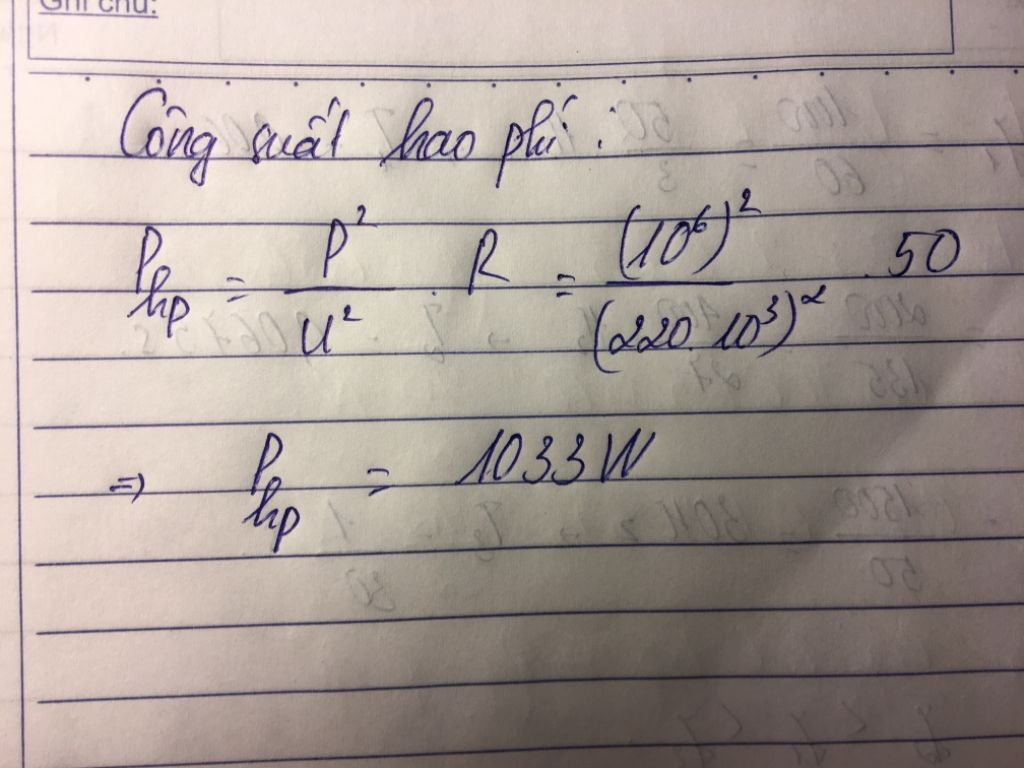 Ghi chú:
Công suất hao phí:
P_hp = P² / U² . R = (10⁶)² / (220.10³)² . 50
=> P_hp = 1033 W